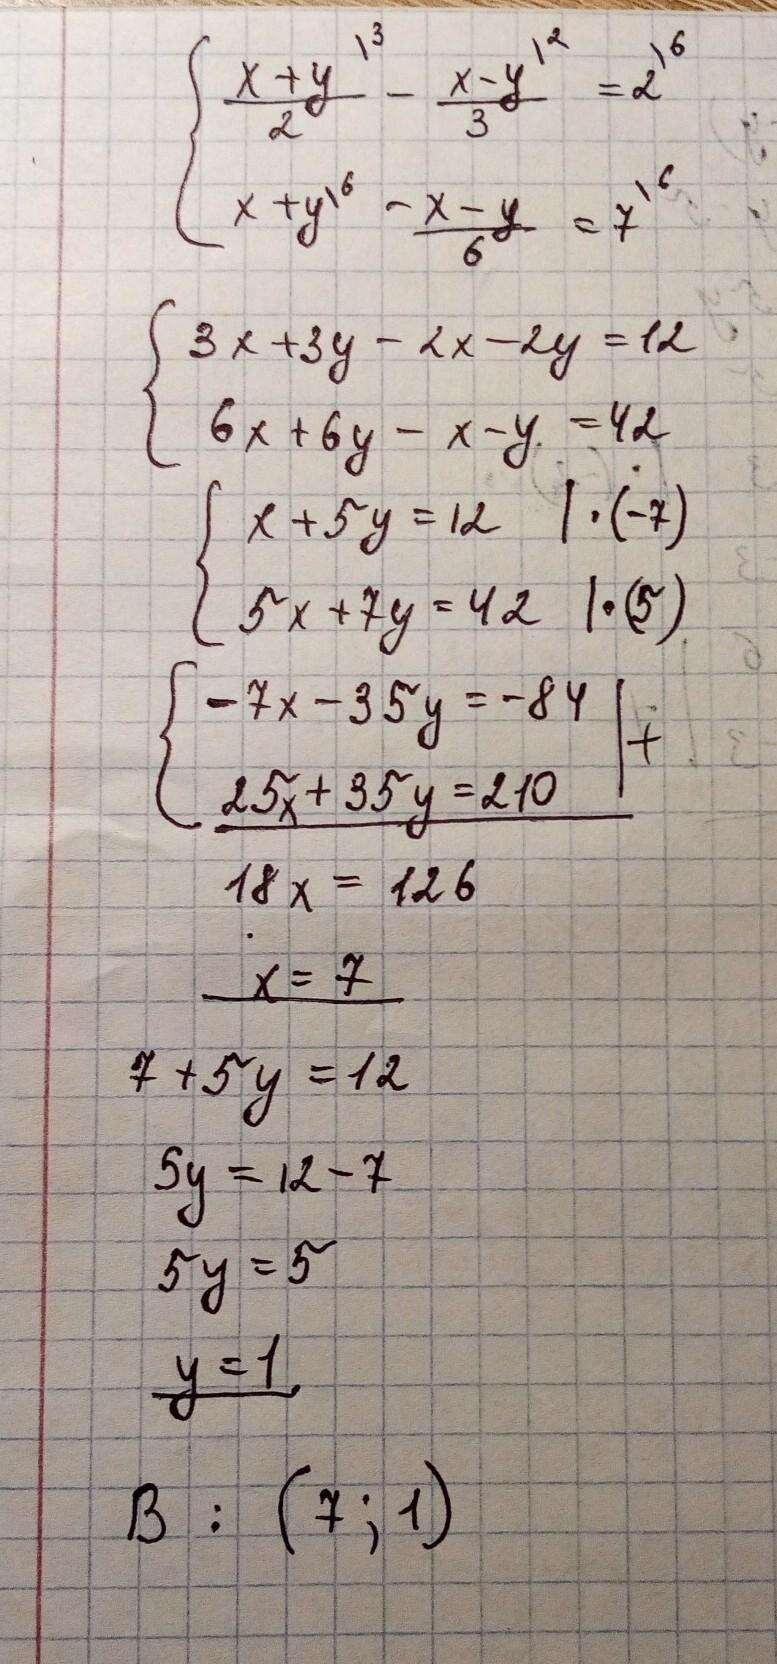 { (x+y)/2 \3 - (x-y)/3 \2 = 2 \6
x+y \6 - (x-y)/6 = 7 \6
{ 3x+3y-2x-2y=12
6x+6y-x-y=42
{ x+5y=12 |·(-7)
5x+7y=42 |·(5)
{ -7x-35y=-84 | +
25x+35y=210
18x = 126
x = 7
7+5y=12
5y=12-7
5y=5
y=1
В : (7; 1)